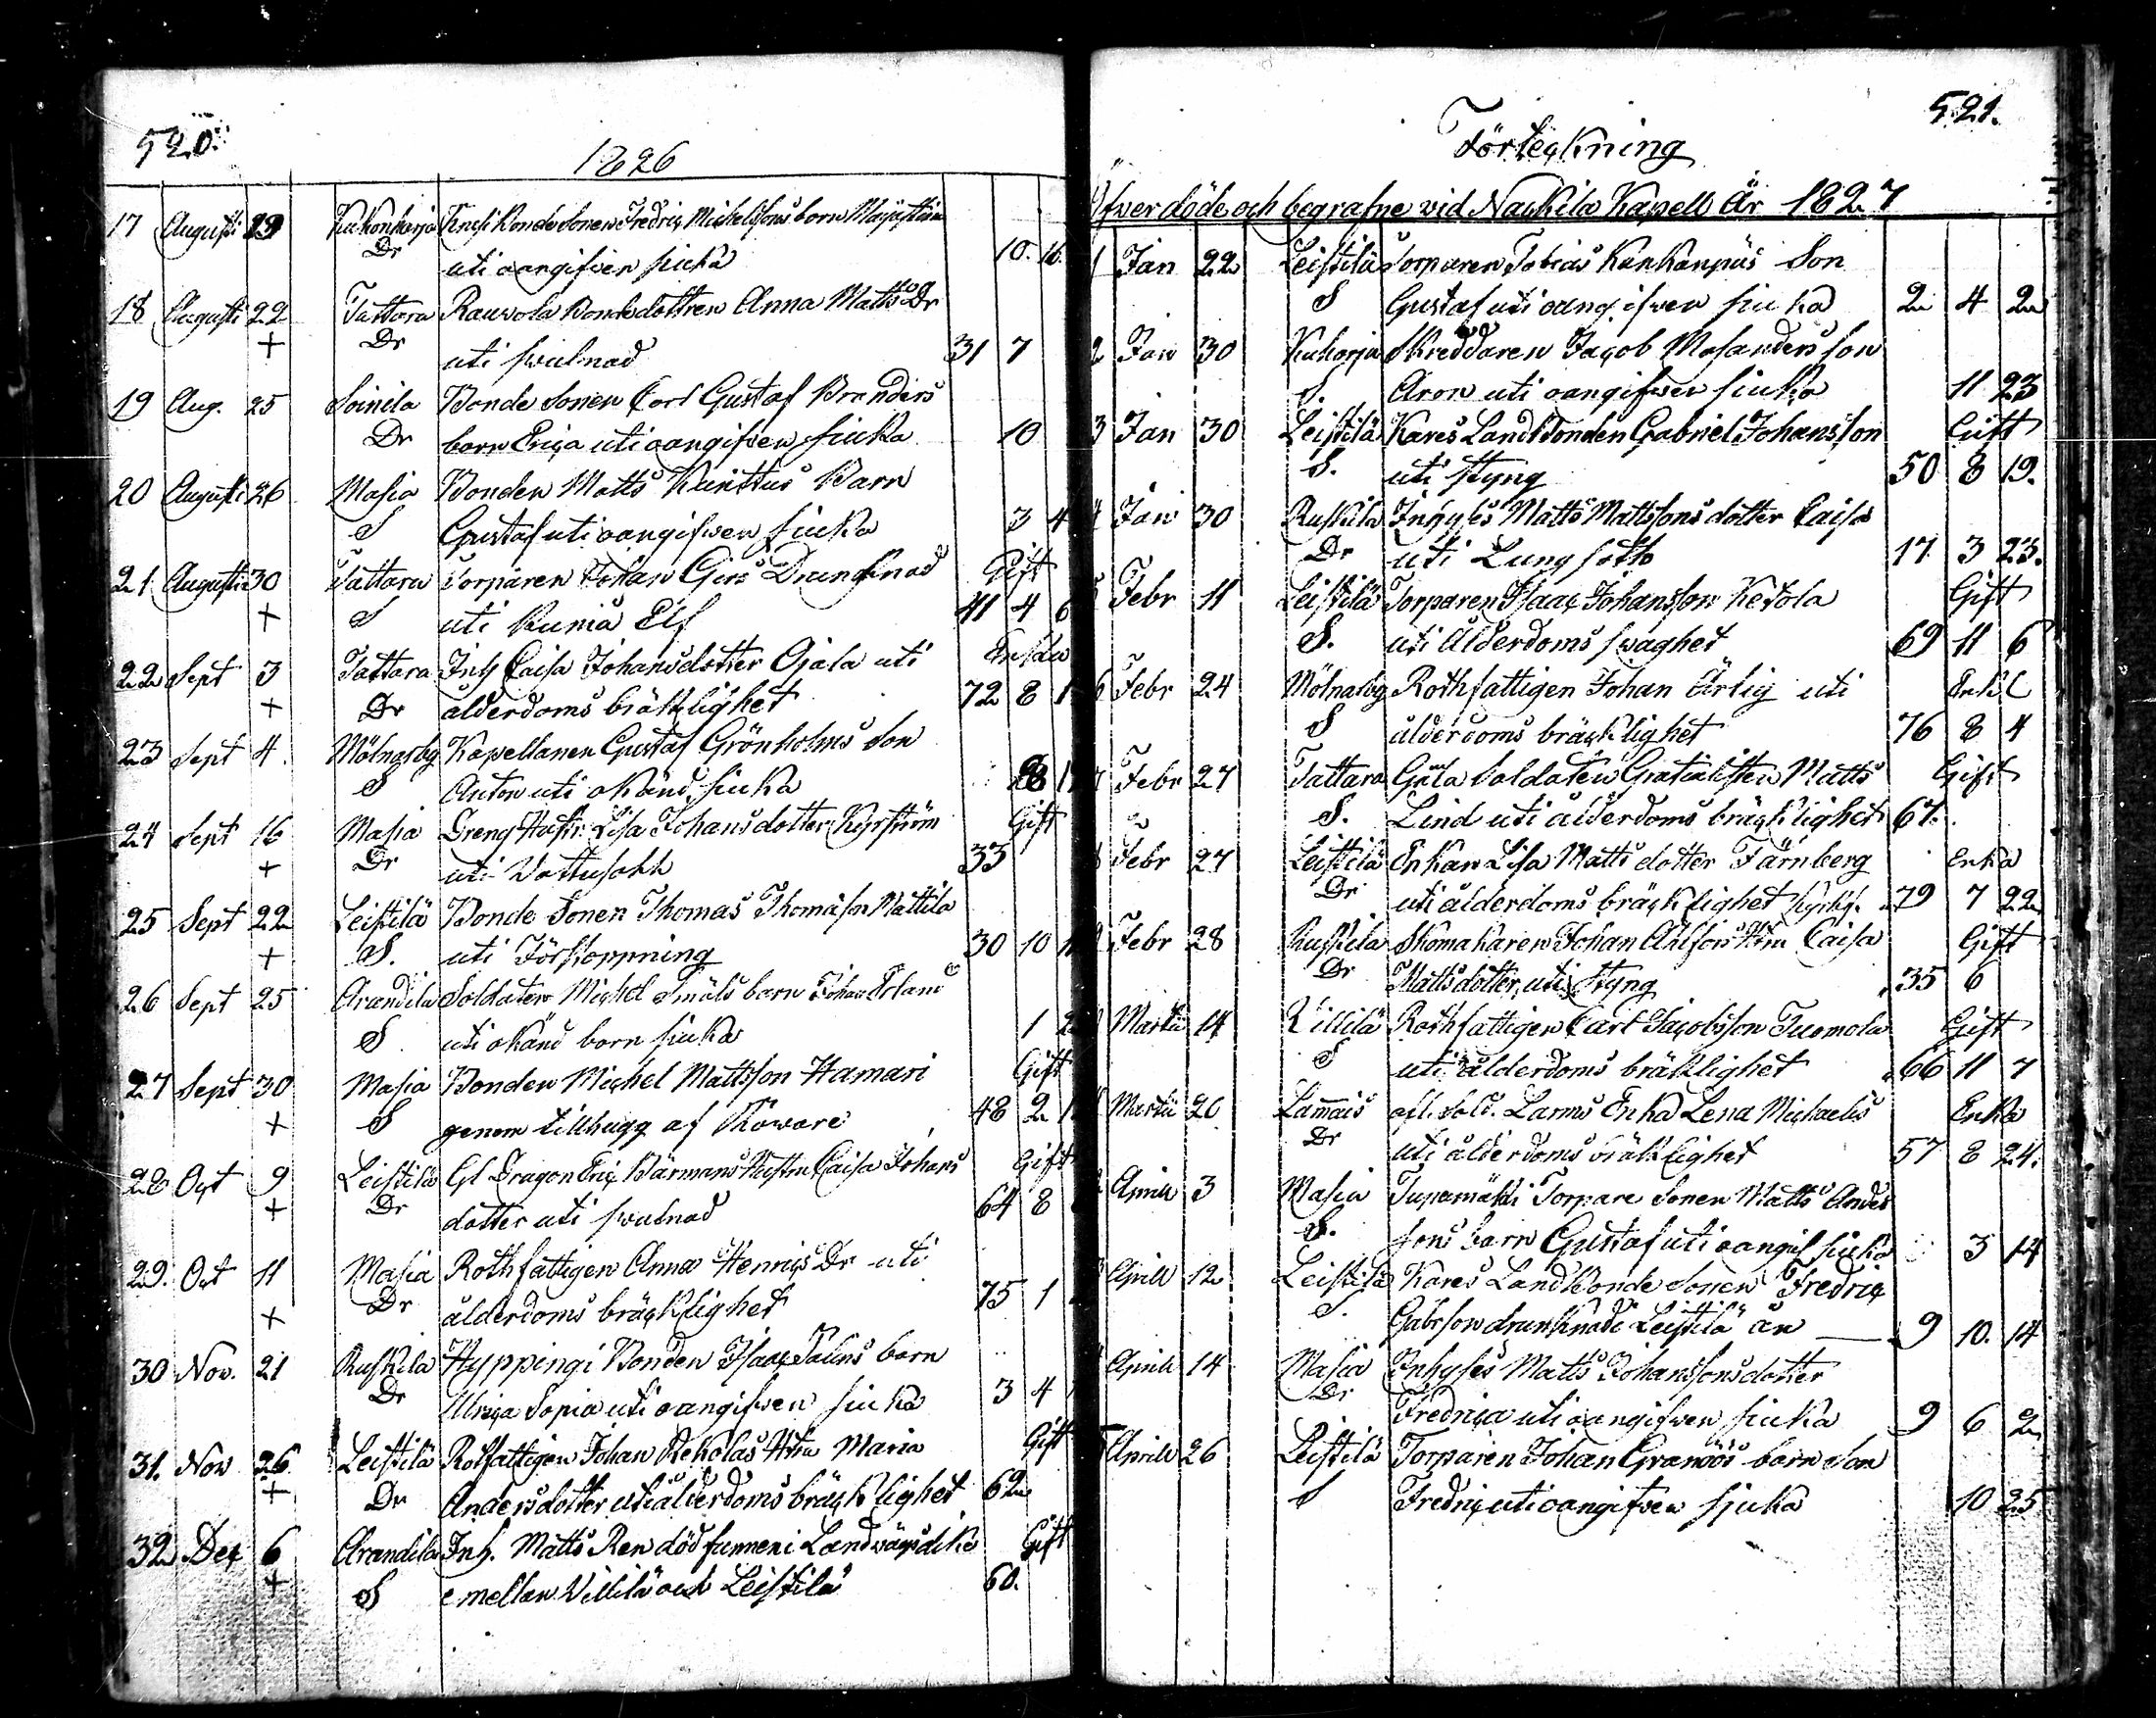 520.
1826
17 Augusti 19 Kukonharja Bonde Sonen Fredriç Michelssons barn
Dr uti oangifven siuka 10. 16.
18 Augusti 22 Tattara Rauvola Bonde dottren Anna Matts Dr
+ Dr uti svulnad 31 7
19 Aug. 25 Soinila Bonde Sonen Carl Gustaf Branders
Dr barn Eriça uti oangifven siuka 10
20 Augusti 26 Masia Bonden Matts Kunttus Barn
S Gustaf uti oangifven siuka 3 4
21 Augusti 30 Tattara Torparen Johan Girs Drunknad Gift
+ S uti Kumå Elf 41 4 6
22 Sept 3 Tattara Inh Caisa Johansdotter Ojala uti Enka
+ Dr ålderdoms bräklighet 72 8
23 Sept 4. Mölnarby Kapellanen Gustaf Grönholms Son
S Anton uti okänd siuka 8
24 Sept 16 Masia Dreng Hustr. Lisa Johansdotter Kyrström Gift
+ Dr uti Vattusokt 33
25 Sept 22 Leistilä Bonde Sonen Thomas Thomasson Mattila
+ S. uti Förstoppning 30 10
26 Sept 25 Arandila Soldaten Michel Smäls barn Johan Erland
S uti okänd barn siuka 1
27 Sept 30 Masia Bonden Michel Mattsson Hamari Gift
+ S genom tillhugg af Röware 48 2
28 Oçt 9 Leistilä Gl Dragon Eriç Bärmans Hustru Caisa Johans Gift
+ Dr dotter uti svulnad 64 8
29. Oct 11 Masia Rothfattigen Anna Henriçs Dr uti
+ Dr ålderdoms bräçklighet 75 1
30 Nov. 21 Ruskila Hyppingi Bonden Isaaç Palins barn
Dr Ulriça Sopia uti oangifven siuka 3 4
31. Nov 26 Leistilä Rotfattigen Johan Rekolas Hstru Maria Gift
+ Dr Andersdotter uti ålderdoms bräçklighet 62
32 Deç 6 Arandila Inh. Matts Ren död funnen i Landvägs dike Gift
+ S emellan Villilä och Leistilä 60.
521.
Förteçkning
Öfwer döde och begrafne vid Naçkila Kapell År 1827
1 Jan 22 Leistilä Torparen Tobias Kankanpäs Son
S Gustaf uti oangifven siuka 2 4 2
2 Jan 30 Kukorja Skreddaren Jaçob Masanders son
S. Aron uti oangifven siuka 11 23
3 Jan 30 Leistilä Kares Landbonden Gabriel Johansson Gift
S. uti Styng 50 8 19.
4 Jan 30 Ruskila Inhyses Matts Mattssons dotter Caisa
Dr uti Lung soth 17 3 23.
5 Febr 11 Leistilä Torparen Isaaç Johansson Ketola Gift
S. uti Ålderdoms svaghet 69 11 6
6 Febr 24 Mölnarby Rothfattigen Johan Ärlig uti Enkl
S ålderdoms bräçklighet 76 8 4
7 Febr 27 Tattara Gåla Soldaten Gratialisten Matts Gift
S. Lind uti ålderdoms bräçklighet 67.
8 Febr 27 Leistilä Enkan Lisa Matts dotter Färnberg Enka
Dr uti ålderdoms bräçklighet 79 7 22
9 Febr 28 Ruskila Skomakaren Johan Ahlfors Hstru Caisa Gift
Dr Matts dotter, uti Styng 35 6
Martii 14 Villilä Rothfattigen Carl Jaçobsson Tuomola Gift
S uti ålderdoms bräklighet 66 11 7
Martii 20 Lammais afl. Sold. Larms Enka Lena Michaelis Enka
Dr uti ålderdoms bräklighet 57 8 24.
Aprill 3 Masia Tupamäki Torpare Sonen Matts Anders
S. sons barn Gustaf uti oangif siuka 3 14
Aprill 12 Leistilä Kares Landbonde Sonen Fredriç
S. Gabrsson drunknad i Leistilä ån 9 10. 14
Aprill 14 Masia Inhyses Matts Johanssons dotter
Dr Fredriça uti oangifven siuka 9 6 2
Aprill 26 Leistilä Torparen Johan Granroos barn Son
S Fredriç uti oangifven sjuka 10 25